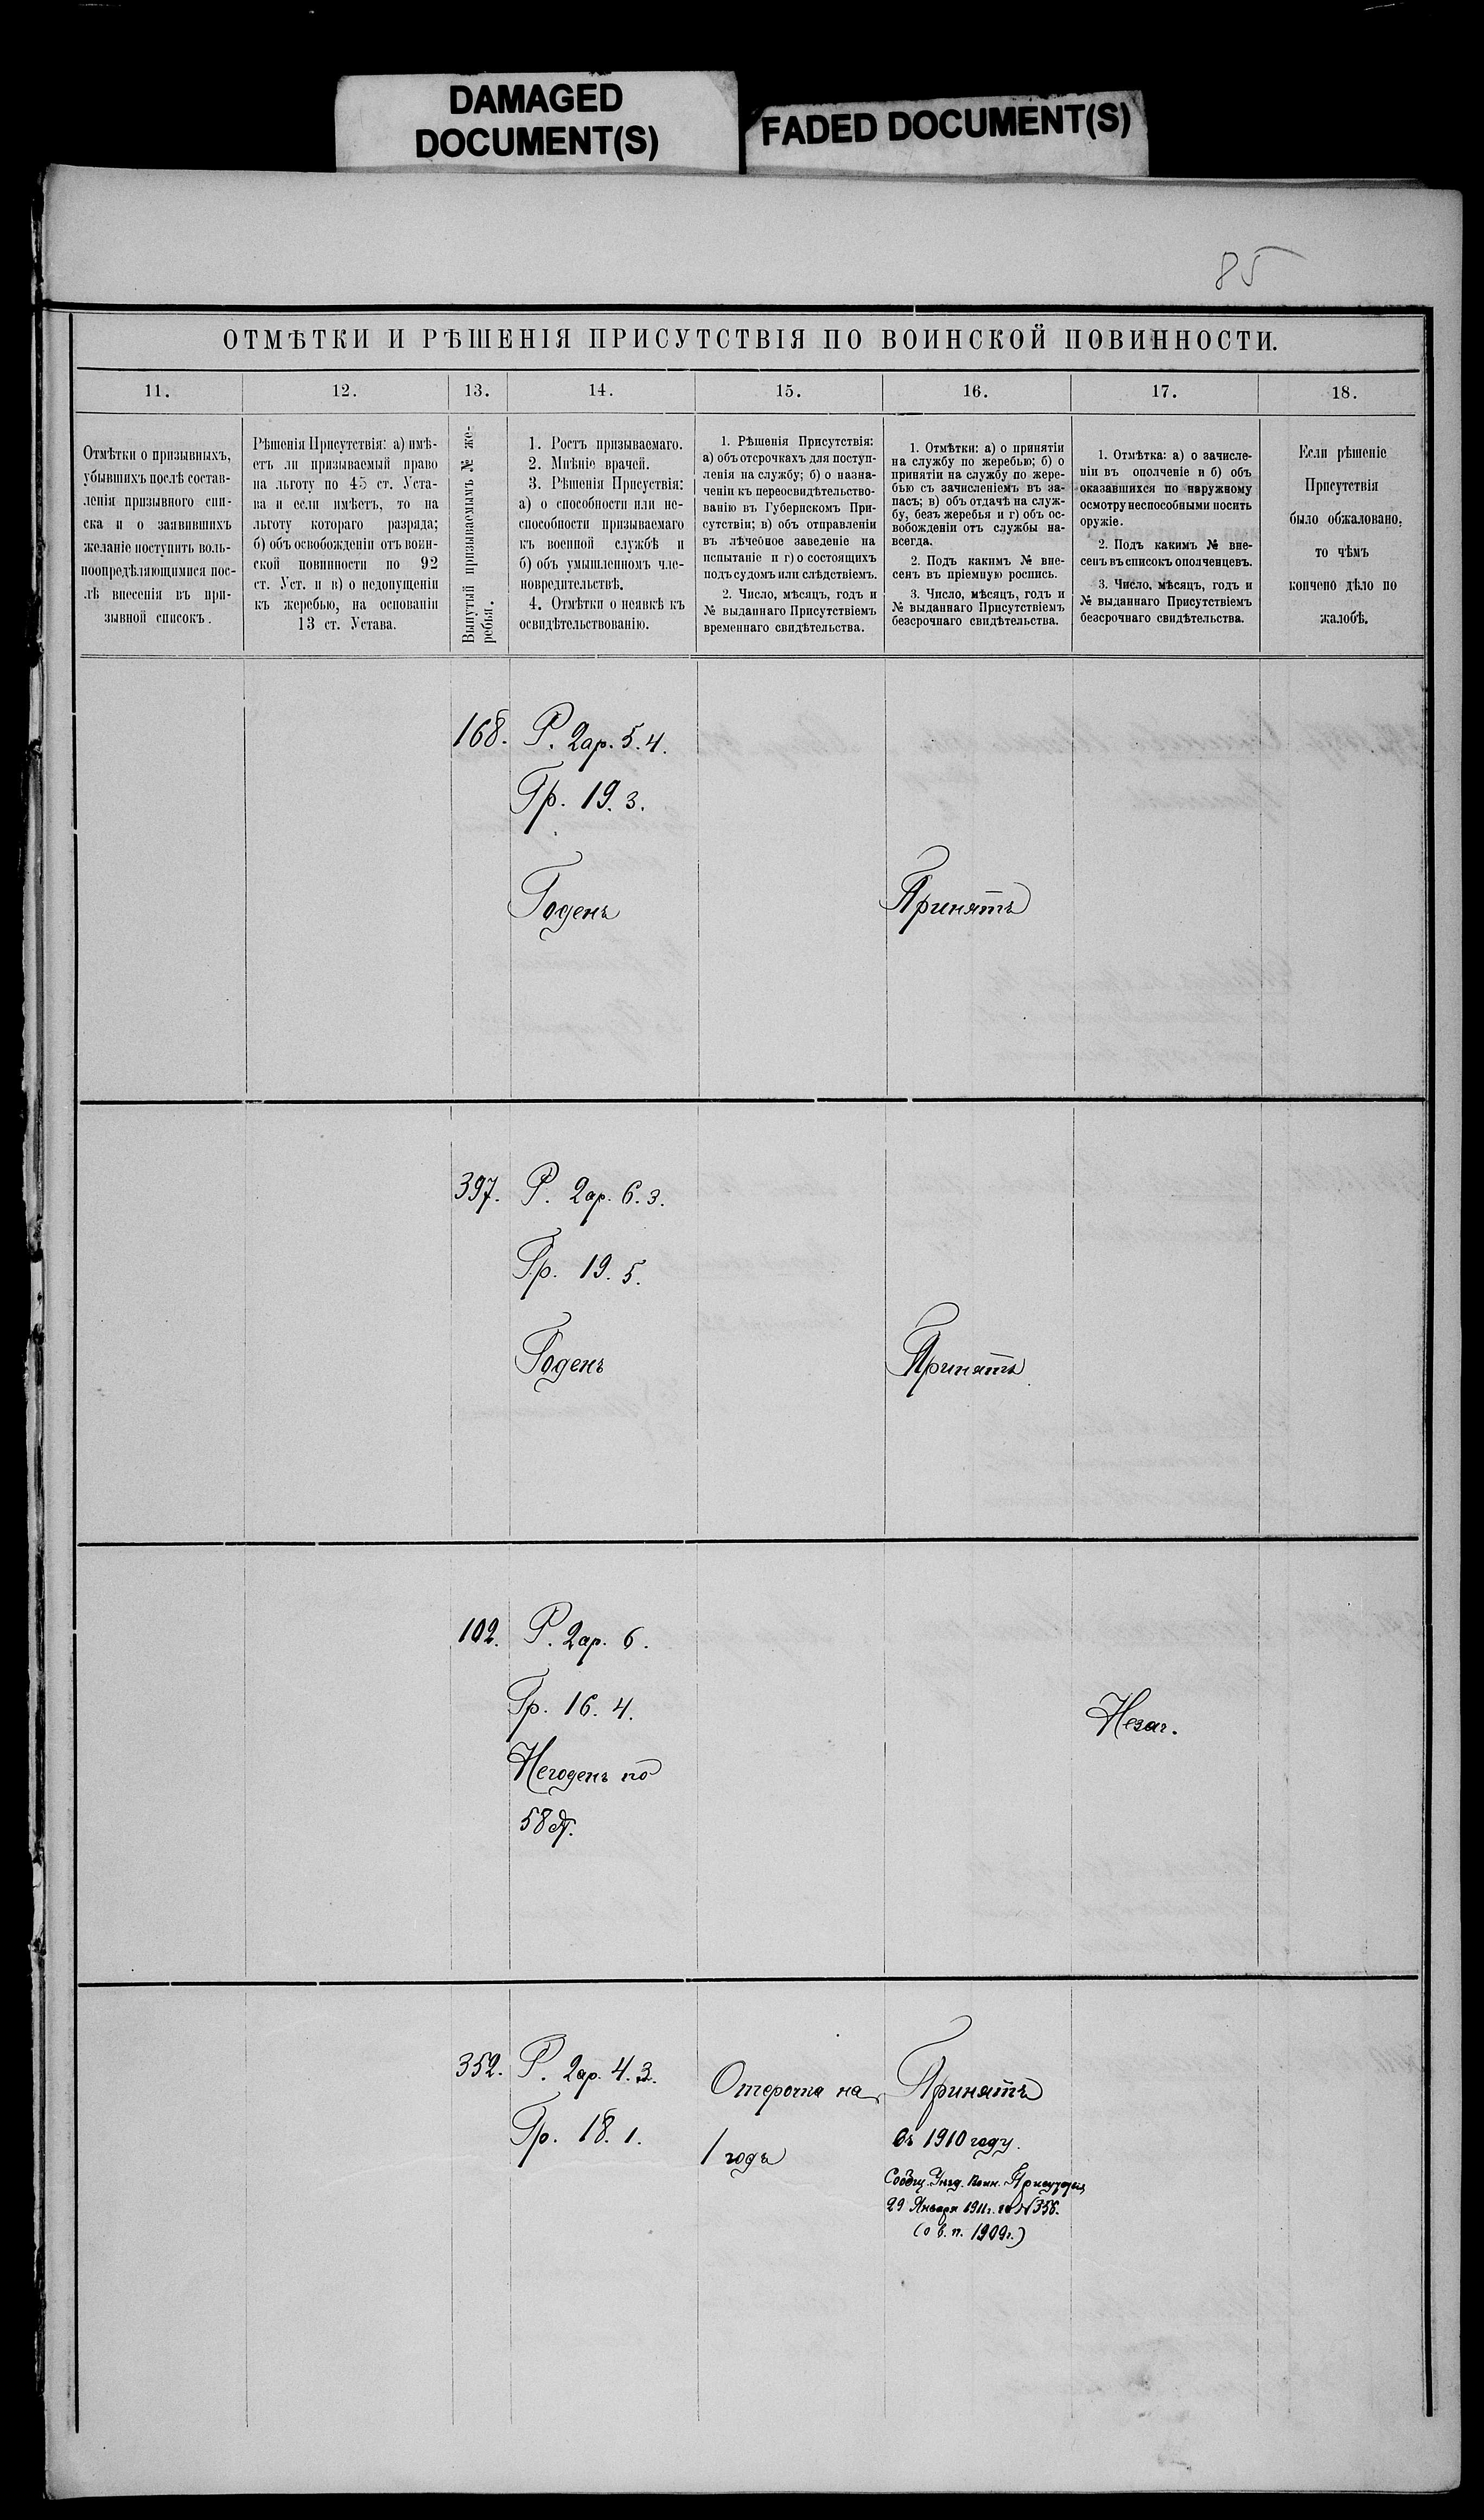 DAMAGED
DOCUMENT(S)
FADED DOCUMENT(S)
85
ОТМѢТКИ И РѢШЕНІЯ ПРИСУТСТВІЯ ПО ВОИНСКОЙ ПОВИННОСТИ.
11.
12.
13.
14.
15.
16.
17.
18.
Отмѣтки о призывныхъ,
убывшихъ послѣ состав-
ленія призывного спи-
ска и о заявившихъ
желаніе поступить воль-
ноопредѣляющимися пос-
лѣ внесенія въ при-
зывной списокъ.
Рѣшенія Присутствія: а) имѣ-
етъ ли призываемый право
на льготу по 45 ст. Уста-
ва и если имѣетъ, то на
льготу котораго разряда;
б) объ освобожденіи отъ воин-
ской повинности по 92
ст. Уст. и в) о недопущеніи
къ жеребью, на основаніи
13 ст. Устава.
Вынутый призываемымъ № же-
ребья.
1. Ростъ призываемаго.
2. Мнѣніе врачей.
3. Рѣшенія Присуствія:
а) о способности или не-
способности призываемаго
къ военной службѣ и
б) объ умышленномъ чле-
новредительствѣ.
4. Отмѣтки о неявкѣ къ
освидѣтельствованію.
1. Рѣшенія Присутствія:
а) объ отсрочкахъ для поступ-
ленія на службу; б) о назна-
ченіи къ переосвидѣтельство-
ванію въ Губернскомъ При-
сутствіи; в) объ отправленіи
въ лѣчебное заведеніе на
испытаніе и г) о состоящихъ
подъ судомъ или слѣдствіемъ.
2. Число, мѣсяцъ, годъ и
№ выданнаго Присутствіемъ
временнаго свидѣтельства.
1. Отмѣтки: а) о принятіи
на службу по жеребью; б) о
принятіи на службу по жере-
бью съ зачисленіемъ въ за-
пасъ; в) объ отдачѣ на служ-
бу, безъ жеребья и г) объ ос-
вобожденіи отъ службы на-
всегда.
2. Подъ какимъ № вне-
сенъ въ пріемную роспись.
3. Число, мѣсяцъ, годъ и
№ выданнаго Присутствіемъ
безсрочнаго свидѣтельства.
1. Отмѣтка: а) о зачисле-
ніи въ ополченіе и б) объ
оказавшихся по наружному
осмотру неспособными носить
оружіе.
2. Подъ какимъ № вне-
сенъ въ списокъ ополченцевъ.
3. Число, мѣсяцъ, годъ и
№ выданнаго Присутствіемъ
безсрочнаго свидѣтельства.
Если рѣшеніе
Присутствія
было обжаловано,
то чѣмъ
кончено дѣло по
жалобѣ.
168. Р. 2ар. 5.4.
Гр. 19.3.
Годенъ
Принятъ
397. Р. 2ар. 6.3.
Гр. 19.5.
Годенъ
Принятъ
102. Р. 2ар. 6.
Гр. 16.4.
Негоденъ по
58
Незач.
352. Р. 2ар. 4.3.
Гр. 18.1.
Отсрочка на
1 годъ
Принятъ
въ 1910 году.
Сообщ. Уѣзд. Воин. Присутствія
29 Января 1911 г. за № 358.
(о в. п. 1909 г.)